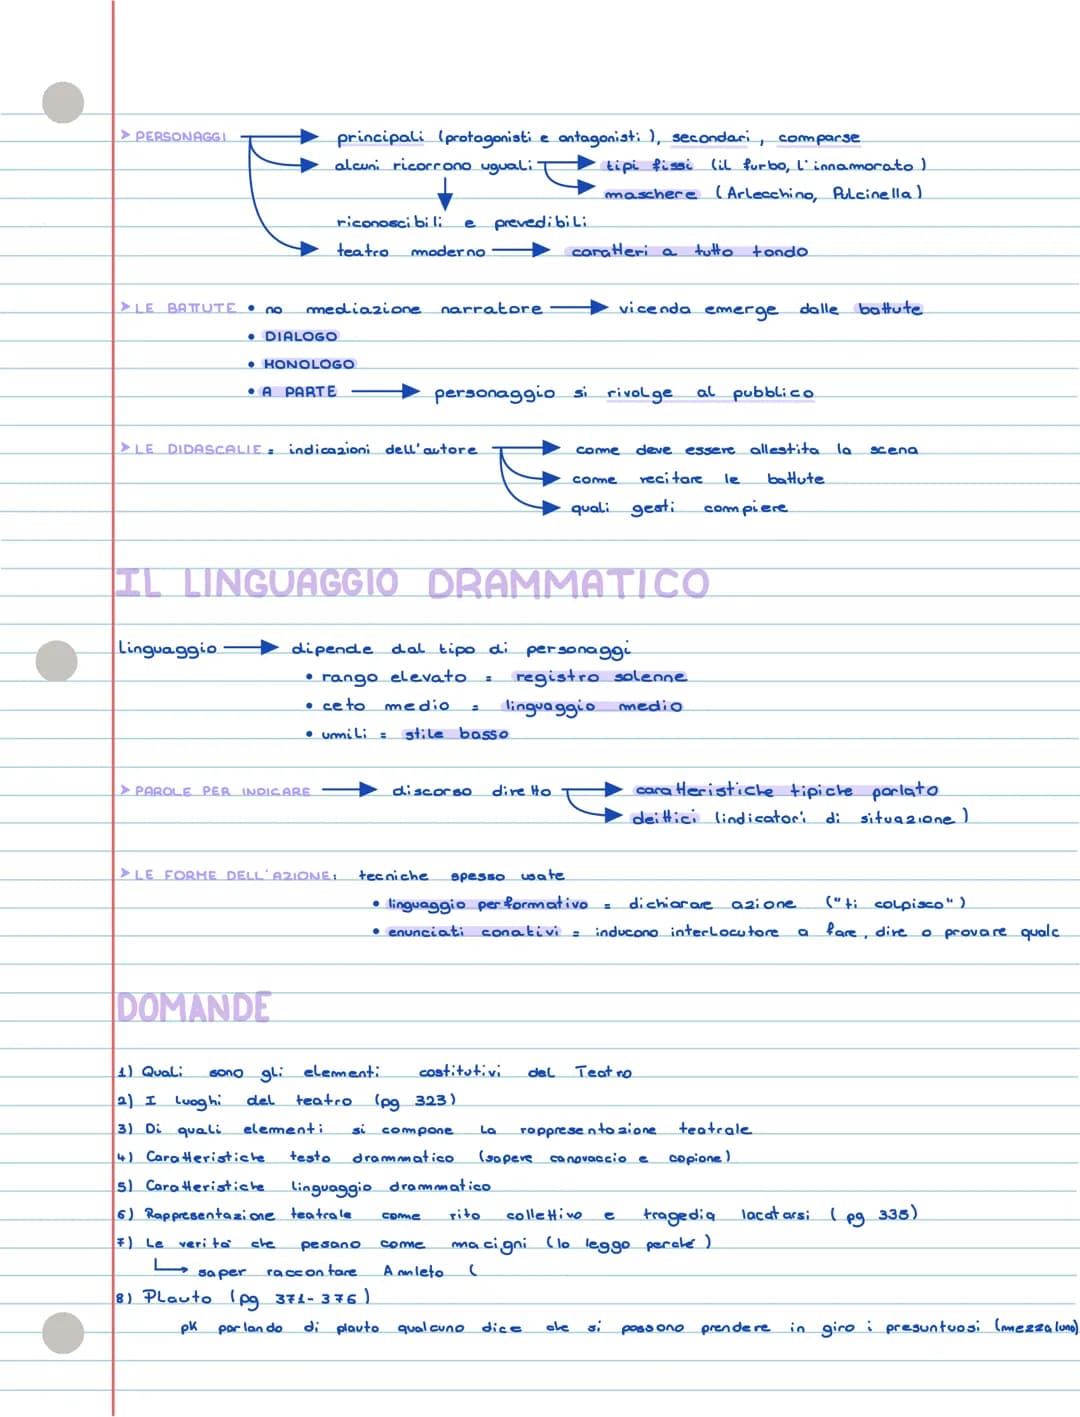 ➤ PERSONAGGI → principali (protagonisti e antagonisti), secondari, comparse
→ alcuni ricorrono uguali → tipi fissi (il furbo, l'innamorato)
→ maschere (Arlecchino, Pulcinella)
riconoscibili e prevedibili
→ teatro moderno → caratteri a tutto tondo
➤ LE BATTUTE • no mediazione narratore → vicenda emerge dalle battute
• DIALOGO
• MONOLOGO
• A PARTE → personaggio si rivolge al pubblico
➤ LE DIDASCALIE = indicazioni dell'autore → come deve essere allestita la scena
→ come recitare le battute
→ quali gesti compiere
IL LINGUAGGIO DRAMMATICO
linguaggio → dipende dal tipo di personaggi
• rango elevato = registro solenne
• ceto medio = linguaggio medio
• umili = stile basso
➤ PAROLE PER INDICARE → discorso diretto → caratteristiche tipiche parlato
→ deittici (indicatori di situazione)
➤ LE FORME DELL'AZIONE: tecniche spesso usate
• linguaggio performativo = dichiarare azione ("ti colpisco")
• enunciati conativi = inducono interlocutore a fare, dire o provare qualc
DOMANDE
1) Quali sono gli elementi costitutivi del Teatro
2) I luoghi del teatro (pg 323)
3) Di quali elementi si compone la rappresentazione teatrale
4) Caratteristiche testo drammatico (sapere canovaccio e copione)
5) Caratteristiche linguaggio drammatico
6) Rappresentazione teatrale come rito collettivo e tragedia (pg 335)
7) Le verità che pesano come macigni (lo leggo perché)
↳ saper raccontare Amleto (
8) Plauto (pg 371-376)
pk parlando di plauto qualcuno dice che si possono prendere in giro i presuntuosi (mezzaluna)